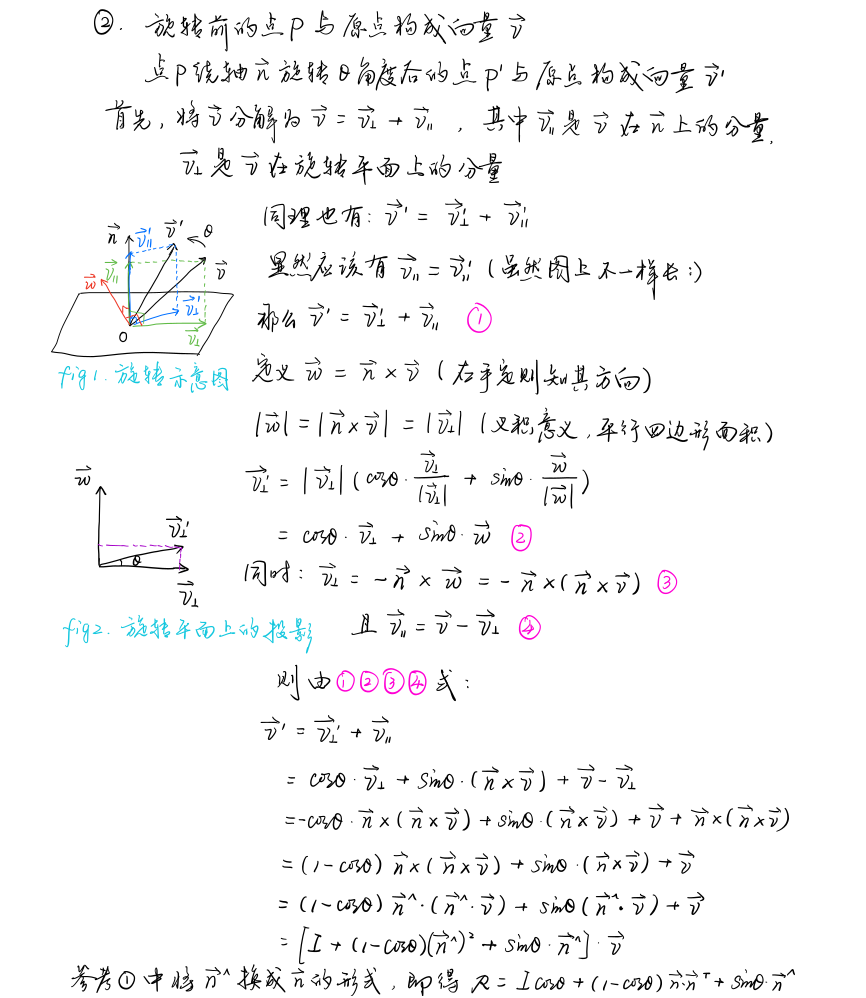 ②. 旋转前的点P与原点构成向量 $\vec{v}$
点P绕轴 $\vec{n}$ 旋转θ角度后的点P'与原点构成向量 $\vec{v}'$
首先, 将 $\vec{v}$ 分解为 $\vec{v} = \vec{v}_{\perp} + \vec{v}_{\parallel}$ , 其中 $\vec{v}_{\parallel}$ 是 $\vec{v}$ 在 $\vec{n}$ 上的分量,
$\vec{v}_{\perp}$ 是 $\vec{v}$ 在旋转平面上的分量
同理也有: $\vec{v}' = \vec{v}_{\perp}' + \vec{v}_{\parallel}'$
显然应该有 $\vec{v}_{\parallel} = \vec{v}_{\parallel}'$ (虽然图上不一样长:)
那么 $\vec{v}' = \vec{v}_{\perp}' + \vec{v}_{\parallel}$ ①
$\vec{n}$ $\vec{v}_{\parallel}'$ $\vec{v}'$ θ
$\vec{w}$ $\vec{v}_{\parallel}$ $\vec{v}$
$\vec{v}_{\perp}'$
O $\vec{v}_{\perp}$
fig1. 旋转示意图
定义 $\vec{w} = \vec{n} \times \vec{v}$ (右手定则知其方向)
$|\vec{w}| = |\vec{n} \times \vec{v}| = |\vec{v}_{\perp}|$ (叉积意义, 平行四边形面积)
$\vec{v}_{\perp}' = |\vec{v}_{\perp}| (\cos\theta \cdot \frac{\vec{v}_{\perp}}{|\vec{v}_{\perp}|} + \sin\theta \cdot \frac{\vec{w}}{|\vec{w}|})$
$= \cos\theta \cdot \vec{v}_{\perp} + \sin\theta \cdot \vec{w}$ ②
$\vec{w}$
$\vec{v}_{\perp}'$
θ
$\vec{v}_{\perp}$
fig2. 旋转平面上的投影
同时: $\vec{v}_{\perp} = -\vec{n} \times \vec{w} = -\vec{n} \times (\vec{n} \times \vec{v})$ ③
且 $\vec{v}_{\parallel} = \vec{v} - \vec{v}_{\perp}$ ④
则由①②③④式:
$\vec{v}' = \vec{v}_{\perp}' + \vec{v}_{\parallel}$
$= \cos\theta \cdot \vec{v}_{\perp} + \sin\theta \cdot (\vec{n} \times \vec{v}) + \vec{v} - \vec{v}_{\perp}$
$= -\cos\theta \cdot \vec{n} \times (\vec{n} \times \vec{v}) + \sin\theta \cdot (\vec{n} \times \vec{v}) + \vec{v} + \vec{n} \times (\vec{n} \times \vec{v})$
$= (1-\cos\theta) \vec{n} \times (\vec{n} \times \vec{v}) + \sin\theta \cdot (\vec{n} \times \vec{v}) + \vec{v}$
$= (1-\cos\theta) \vec{n}^{\wedge} \cdot (\vec{n}^{\wedge} \cdot \vec{v}) + \sin\theta (\vec{n}^{\wedge} \cdot \vec{v}) + \vec{v}$
$= [I + (1-\cos\theta)(\vec{n}^{\wedge})^2 + \sin\theta \cdot \vec{n}^{\wedge}] \cdot \vec{v}$
参考①中将 $\vec{n}^{\wedge}$ 换成 $\vec{n}$ 的形式, 即得 $R = I\cos\theta + (1-\cos\theta) \vec{n} \cdot \vec{n}^T + \sin\theta \cdot \vec{n}^{\wedge}$